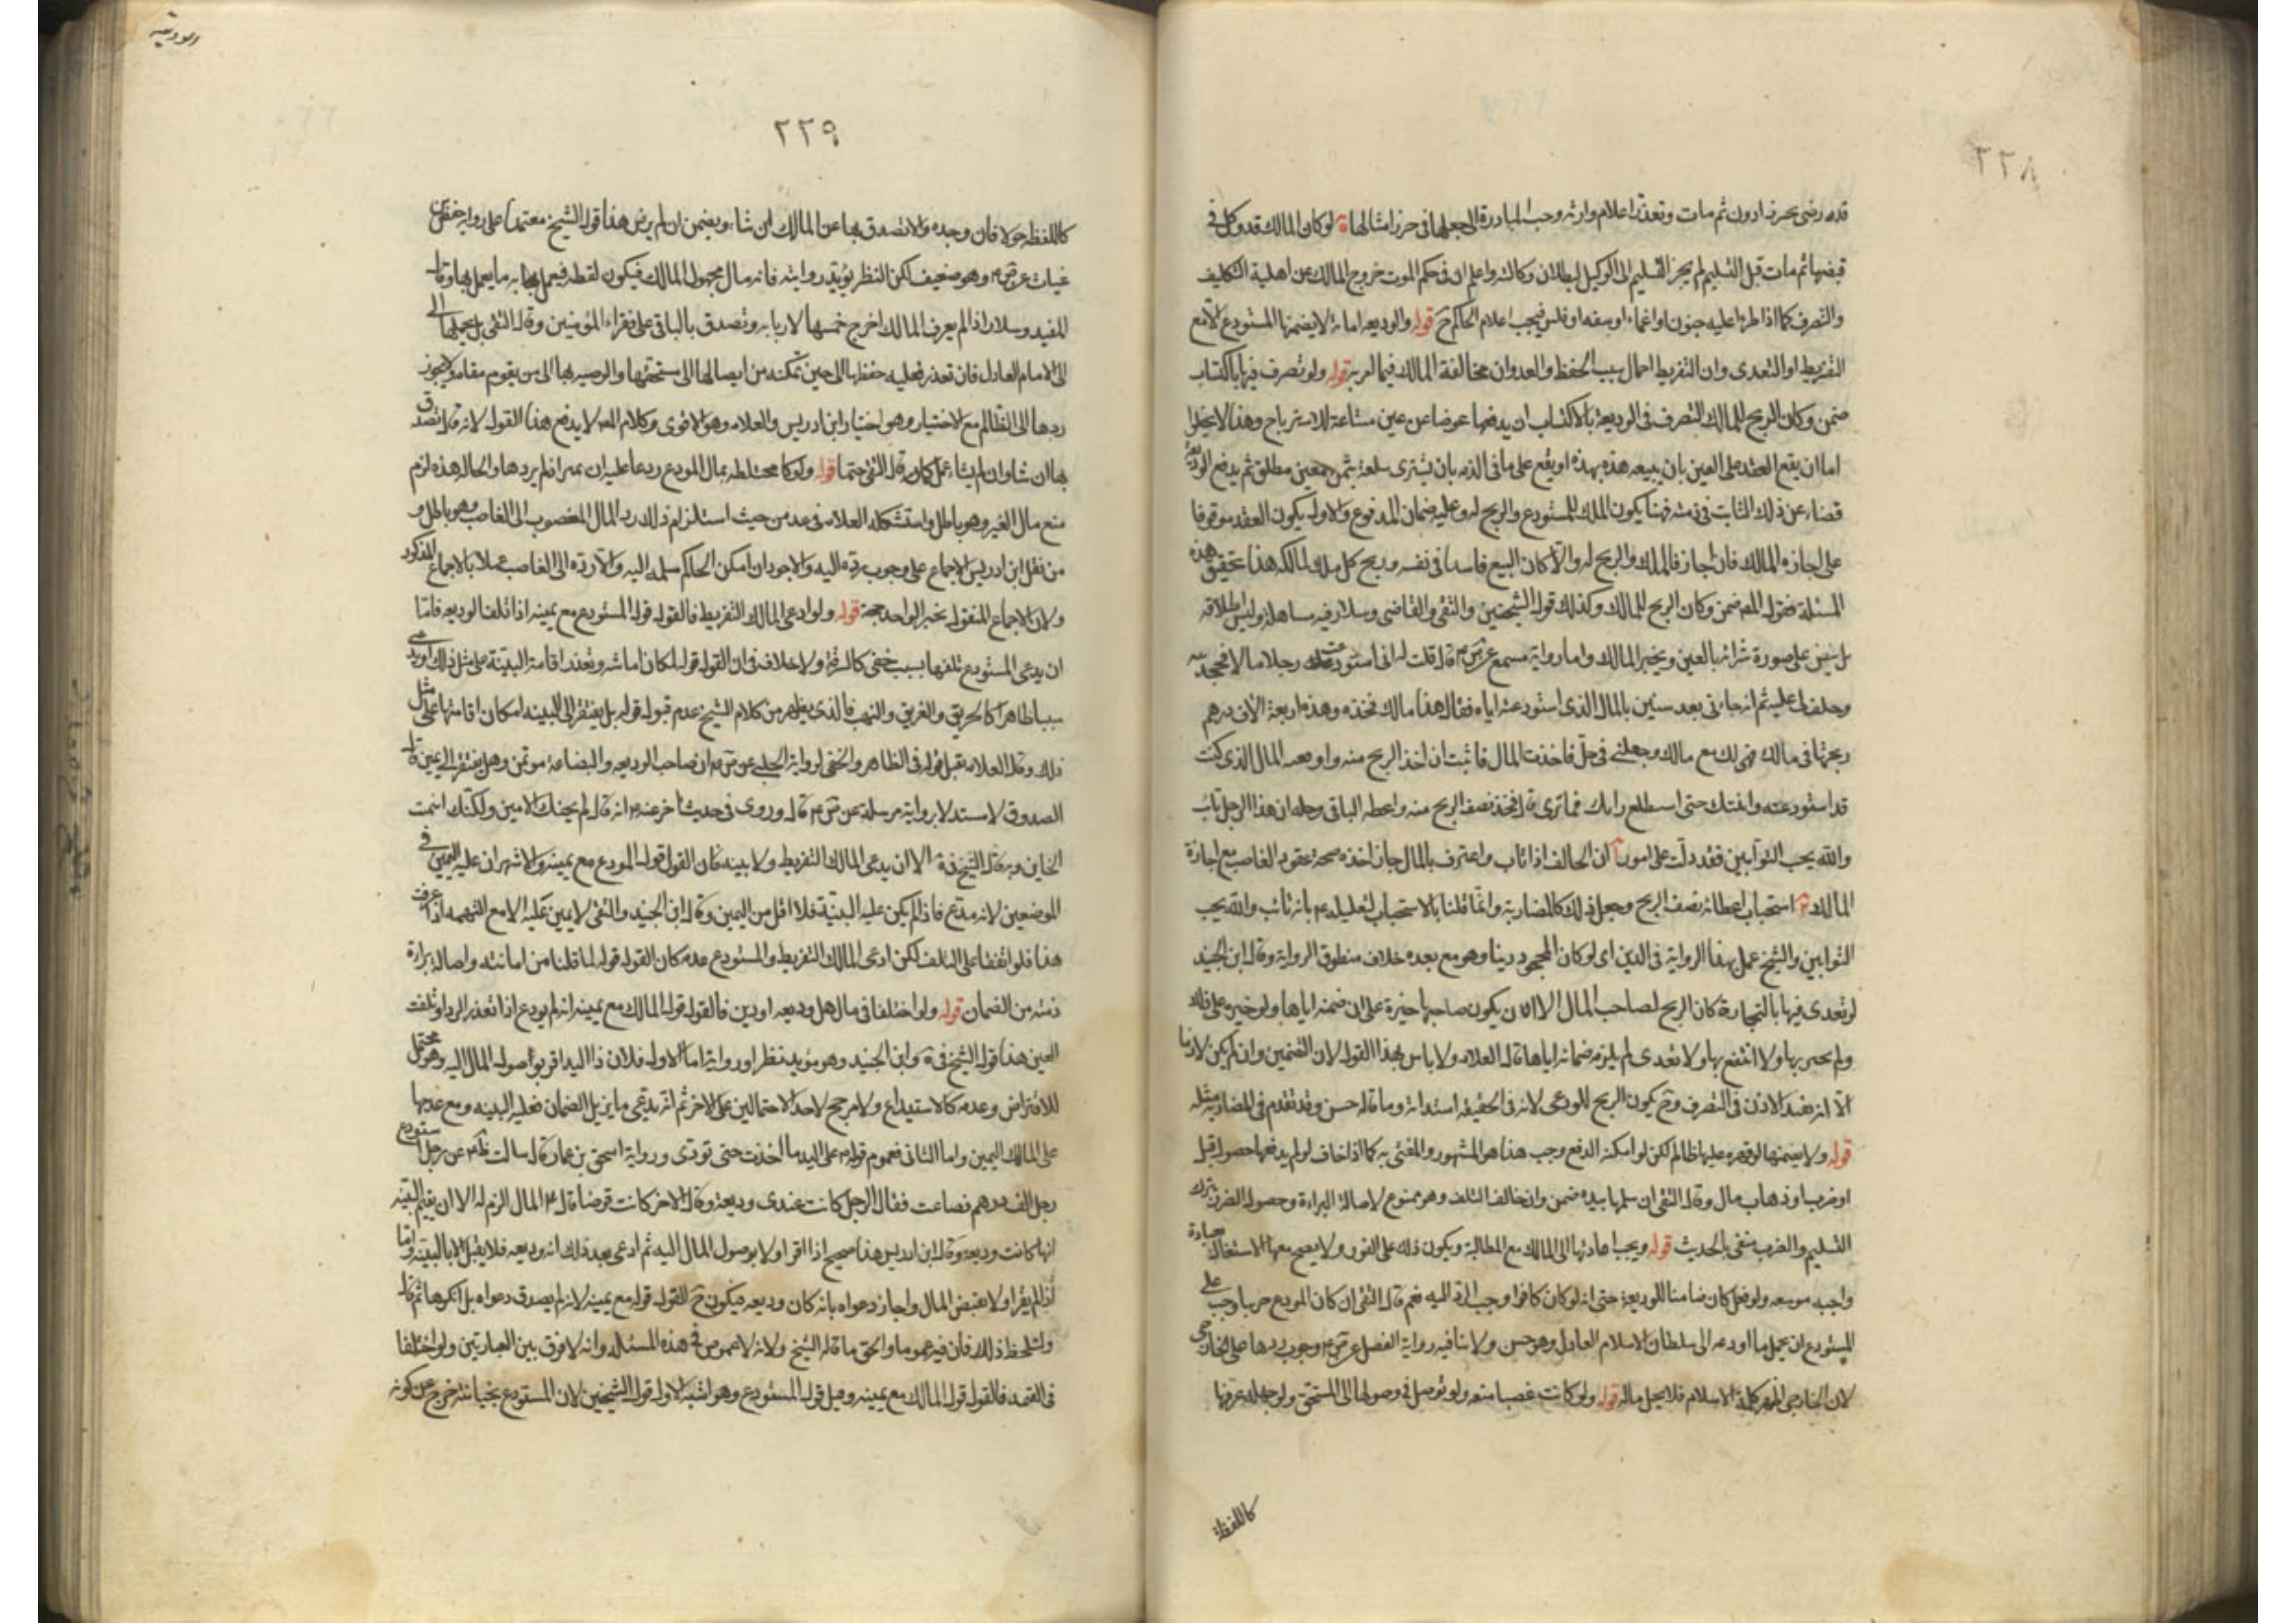 ٢٢٨
قده رضى بحرز ادون ثم مات وتعذر اعلام وارثه وجب المبادرة الى جعلها فى حرز امثالها لو كان المالك قد وكل فى
قبضها ثم مات قبل التسليم لم يجز التسليم الى الوكيل لبطلان وكالته واعلم ان فى حكم الموت خروج المالك عن اهلية التكليف
والتصرف كما اذا طرا عليه جنون او اغماء او سفه او فلس فيجب اعلام الحاكم ح قوله والوديعه امانة لا يضمنها المستودع الا مع
التفريط او التعدى وان التفريط اهمال سبب الحفظ والعدوان مخالفة المالك فيما امر به قوله ولو تصرف فيها باكتساب
ضمن وكان الربح للمالك التصرف فى الوديعة بالاكتساب ان يدفعها عوضا عن عين مبتاعة للاسترباح وهذا لا يخلوا
اما ان يقع العقد على العين بان يبيعه هذه بهذه او يقع على ما فى الذمه بان يشترى سلعة بثمن معين مطلق ثم يدفع الوديعة
قضاء عن ذلك الثابت فى ذمته فهنا يكون الملك للمستودع والربح له وعليه ضمان المدفوع والاول يكون العقد موقوفا
على اجازه المالك فان اجاز فالملك والربح له والا كان البيع فاسدا فى نفسه وربح كل ملك لمالكه هذا تحقيق هذه
المسئلة فقول المص ضمن وكان الربح للمالك وكذلك قول الشيخين والتقى والقاضى وسلار فيه مساهلة وليس اطلاقه
بل يتبين على صورة شرائه بالعين ويخير المالك واما رواية مسمع عن ص ع قال قلت له انى استودعت رجلا مالا فجحدنيه
وحلف لى عليه ثم انه جاءنى بعد سنين بالمال الذى استودعته اياه فقال هذا مالك فخذه وهذه اربعة الاف درهم
ربحتها فى مالك فهى لك مع مالك وجعلنى فى حل فاخذت المال فابيت ان اخذ الربح منه واوقف المال الذى كنت
قد استودعته واتيتك حتى استطلع رايك فما ترى قال فخذ نصف الربح منه واعطه الباقى وحله ان هذا الرجل تائب
والله يحب التوابين فقد دلت على امور ان الحالف اذا تاب واعترف بالمال جاز اخذه صحة عقود الغاصب مع اجازة
المالك استحباب اعطائه نصف الربح وجعل ذلك كالمضاربة وانما قلنا بالاستحباب لتعليله ع بانه تائب والله يحب
التوابين والشيخ عمل بهذا الرواية فى الدين اى لو كان المجحود دينا وهو مع بعده خلاف منطوق الرواية وقال ابن الجنيد
لو تعدى فيها بالتجارة كان الربح لصاحب المال الا ان يكون صاحبها خيره على ان ضمنه اياها ولو خيره على ذلك
ولم يتجر بها ولا انتفع بها ولا تعدى لم يلزمه ضمانه اياها قال العلامه ولا باس بهذا القول لان التضمين وان لم يكن لازما
الا انه يفيد الاذن فى التصرف وح يكون الربح للمودعى لانه فى الحقيقه استدانة وما قاله حسن وقد تقدم فى المضاربة مثله
قوله ولا يضمنها لو قهره عليها ظالم لكن لو امكنه الدفع وجب هذا هو المشهور والمفتى به كما اذا خاف لو لم يدفعها حصول قتل
او ضرب او ذهاب مال وقال التقى ان سلمها بيده ضمن وان خالف التلف وهو ممنوع لاصالة البراءة وحصول الضرر بترك
التسليم والضرب منفى بالحديث قوله ويجب اعادتها الى المالك مع المطالبة ويكون ذلك على الفور ولا يصح معها الاشتغال بعبادة
واجبه موسعه ولو فعل كان ضامنا للوديعة حتى انه لو كان كافرا وجب الرد اليه نعم قال التقى ان كان المودع حربيا وجب على
المستودع ان يحمل ما اودعه الى سلطان الاسلام العادل وهو حسن ولا ينافيه رواية الفضل عن ص ع وجوب ردها على الخارجى
لان الخارجى اظهر كلمة الاسلام فلا يحل ماله قوله ولو كانت غصبا منعه ولو توصل فى وصولها الى المستحق ولو جهله عرفها
كاللقطة
الوديعه
٢٢٩
كاللقطه حولا فان وجده والا تصدق بها عن المالك ان شاء ويضمن ان لم يرض هذا قول الشيخ معتمدا على رواية حفص بن
غياث عن ص ع وهو ضعيف لكن النظر يؤيد روايته فانه مال مجهول المالك فيكون لقطه فيعمل به ما يعمل بها وقال
المفيد وسلار اذا لم يعرف المالك اخرج خمسها لاربابه وتصدق بالباقى على فقراء المؤمنين وقال التقى بل يحملها الى
الامام العادل فان تعذر فعليه حفظها الى حين تمكنه من ايصالها الى مستحقها والوصيه بها الى من يقوم مقامه ولا يجوز
ردها الى الظالم مع الاختيار وهو اختيار ابن ادريس والعلامه وهو الاقوى وكلام المص لا يدفع هذا القول لانه قال تصدق
بها ان شاء وان لم يشاء عمل كما قال التقى حتما قوله ولو كانت مختلطه بمال المودع ردها عليه ان لم يتميز فلم يردها والحاله هذه لزم
منع مال الغير وهو باطل واستشكله العلامه فى عد من حيث استلزام ذلك رد المال المغصوب الى الغاصب وهو باطل و
من نقل ابن ادريس الاجماع على وجوب رده اليه والاجود ان امكن الحاكم سلمه اليه والا رده الى الغاصب عملا بالاجماع المذكور
ولان الاجماع المنقول بخبر الواحد حجة قوله ولو ادعى المالك التفريط فالقول قول المستودع مع يمينه اذا تلف الوديعه فاما
ان يدعى المستودع تلفها بسبب خفى كالسرقة ولا خلاف فى ان القول قوله لمكان امانته وتعذر اقامة البينة على مثل ذلك او يدعى
سببا ظاهرا كالحريق والغريق والنهب فالذى يظهر من كلام الشيخ عدم قبول قوله بل يفتقر الى البينه لامكان اقامتها على مثل
ذلك وقال العلامه يقبل قوله فى الظاهر والخفى لرواية الحلبى عن ص ع ان صاحب الوديعه والبضاعه موتمن وهل يفتقر الى يمين قال
الصدوق لا مستدلا برواية مرسلة عن ص ع قال وروى فى حديث اخر عنه انه قال لم يخنك الامين ولكنك ائتمنت
الخاين وبه قال الشيخ فى ية الا ان يدعى المالك التفريط ولا بينه فان القول قول المودع مع يمينه والاشهر ان عليه اليمين فى
الموضعين لانه مدع فاذا لم يكن عليه البينة فلا اقل من اليمين وقال ابن الجنيد والتقى لا يمين عليه الا مع التهمه اذا عرفت
هذا فلو اتفقا على التلف لكن ادعى المالك التفريط والمستودع عدمه كان القول قوله لما قلنا من امانته واصالة براءة
ذمته من الضمان قوله ولو اختلفا فى مال هل وديعه او دين فالقول قول المالك مع يمينه انه لم يودع اذا تعذر الرد او تلفت
العين هذا قول الشيخ فى ية وابن الجنيد وهو مؤيد بنظر او رواية اما الاول فلان ذا اليد اقر بوصول المال اليه وهو محتمل
للاقتراض وعدمه كالاستيداع ولا مرجح لاحد الاحتمالين على الاخر ثم انه يدعى ما يزيل الضمان فعليه البينه ومع عدمها
على المالك اليمين واما الثانى فعموم قوله ع على اليد ما اخذت حتى تودى ورواية اسحق بن عمار قال سالت ظم ع عن رجل استودع
رجل الف درهم فضاعت فقال الرجل كانت عندى وديعة وقال الاخر كانت قرضا قال ع المال الزم له الا ان يقيم البينه
انها كانت وديعة وقال ابن ادريس هذا صحيح اذا اقر اولا بوصول المال اليه ثم ادعى بعد ذلك انه وديعه فلا يقبل الا بالبينه واما
اذا لم يقر اولا بقبض المال واجاز دعواه بانه كان وديعه فيكون ح القول قوله مع يمينه لانه لم يصدق دعواه بل انكرها ثم قال
وليلحظ ذلك فان فيه غموضا والحق ما قاله الشيخ ولانه لا غموض فى هذه المسئله وانه لا فرق بين العبارتين ولو اختلفا
فى القيمه فالقول قول المالك مع يمينه وقيل قول المستودع وهو اشبه الاول قول الشيخين لان المستودع بخيانته خرج عن كونه